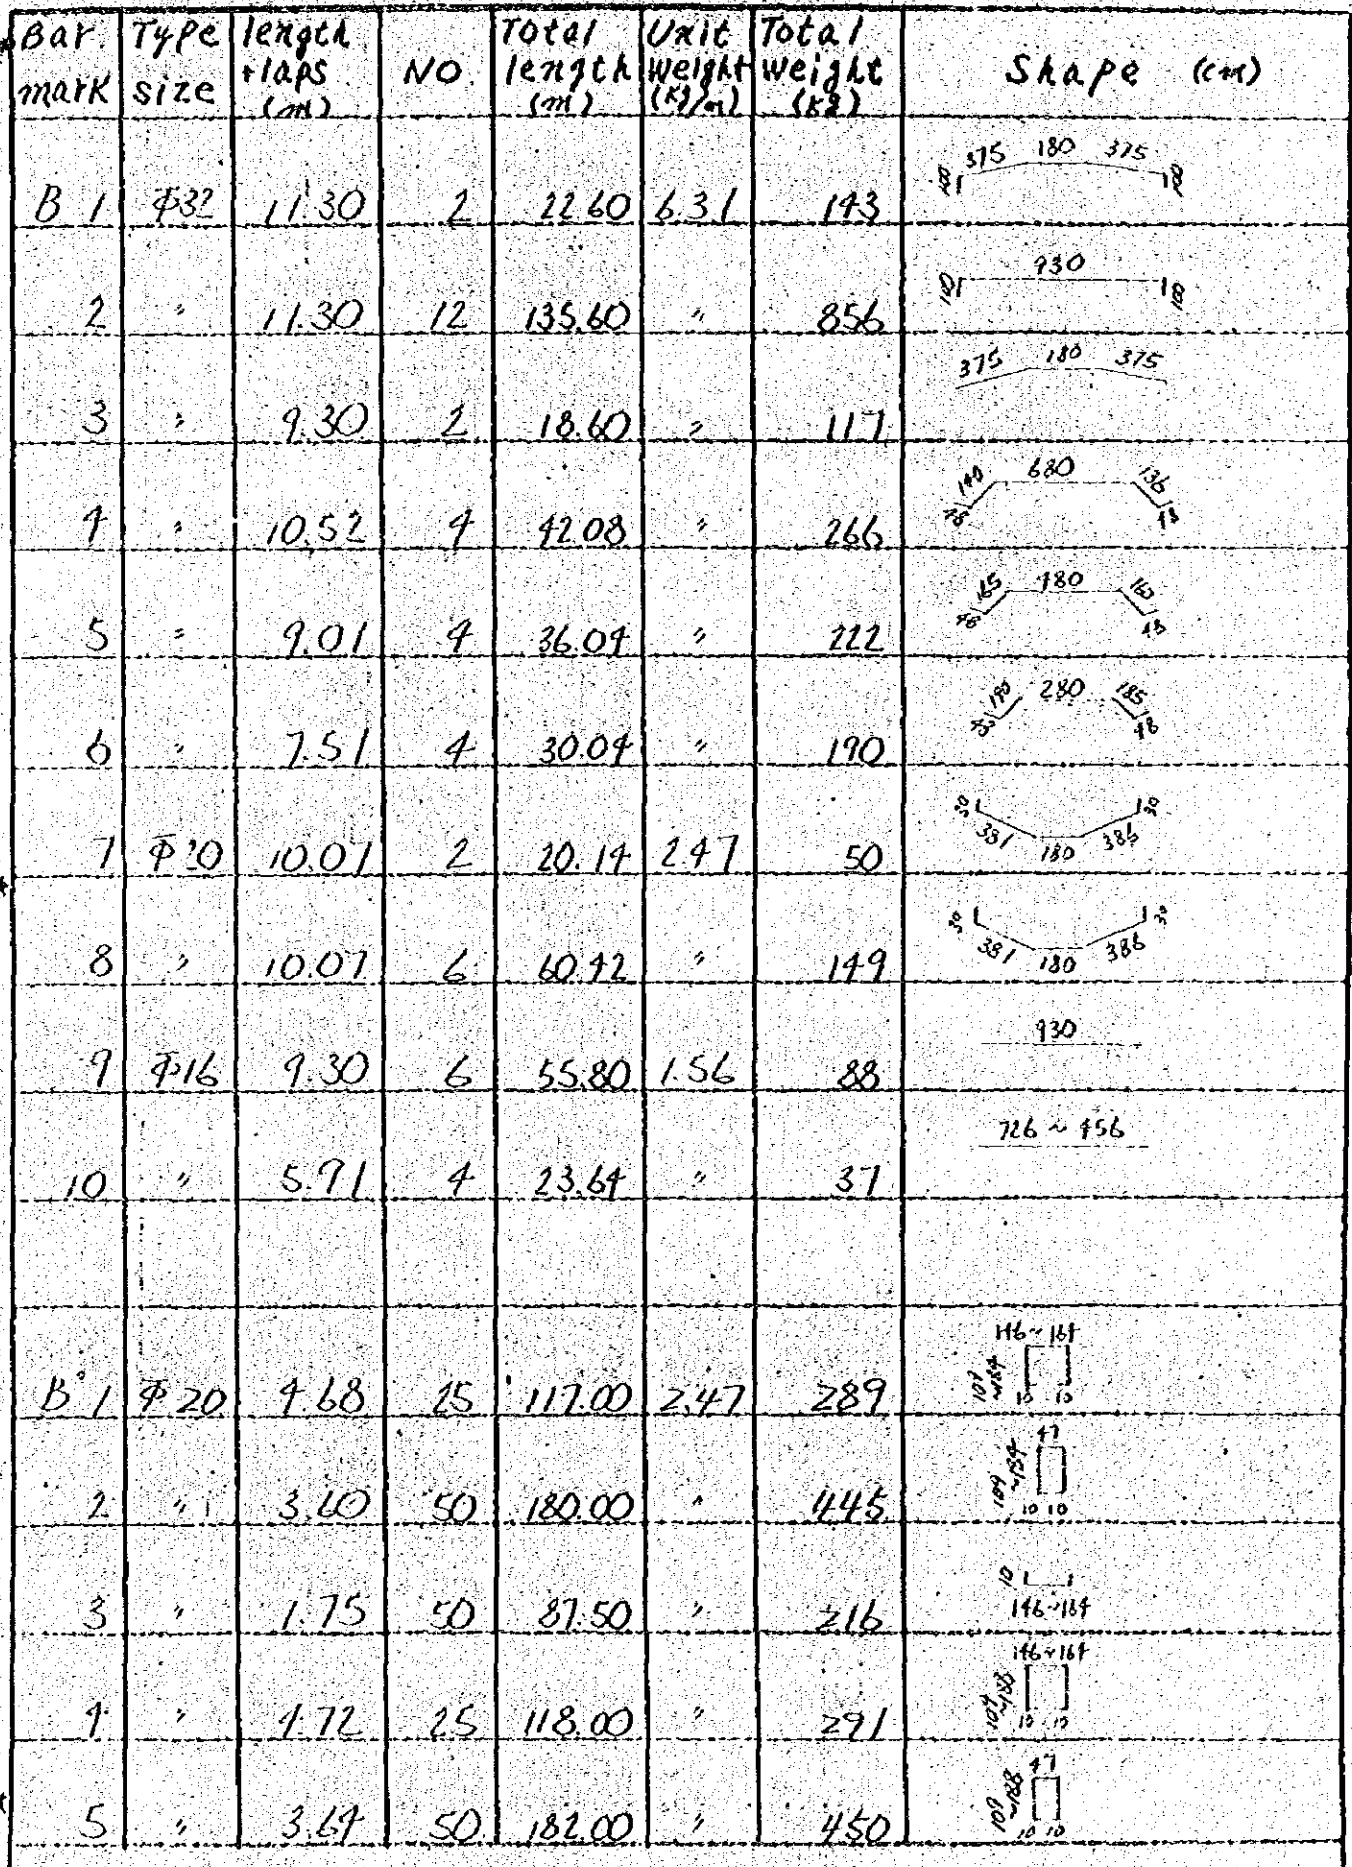 Bar mark Type size length +laps (m) NO. Total length (m) Unit weight (kg/m) Total weight (kg) Shape (cm)
B 1 Φ32 11.30 2 22.60 6.31 143 100 375 180 375 100
2 " 11.30 12 135.60 " 856 100 930 100
3 " 9.30 2 18.60 " 117 375 180 375
4 " 10.52 4 42.08 " 266 48 140 680 136 48
5 " 9.01 4 36.04 " 222 48 165 480 160 48
6 " 7.51 4 30.04 " 190 48 190 280 185 48
7 Φ20 10.07 2 20.14 2.47 50 30 381 180 386 30
8 " 10.07 6 60.42 " 149 30 381 180 386 30
9 Φ16 9.30 6 55.80 1.56 88 930
10 " 5.91 4 23.64 " 37 726 ~ 456
B' 1 Φ20 4.68 25 117.00 2.47 289 146~164 10 10
2 " 3.60 50 180.00 " 445 47 10 10
3 " 1.75 50 87.50 " 216 10 146~164
4 " 4.72 25 118.00 " 291 146~164 10 10
5 " 3.64 50 182.00 " 450 47 10 10